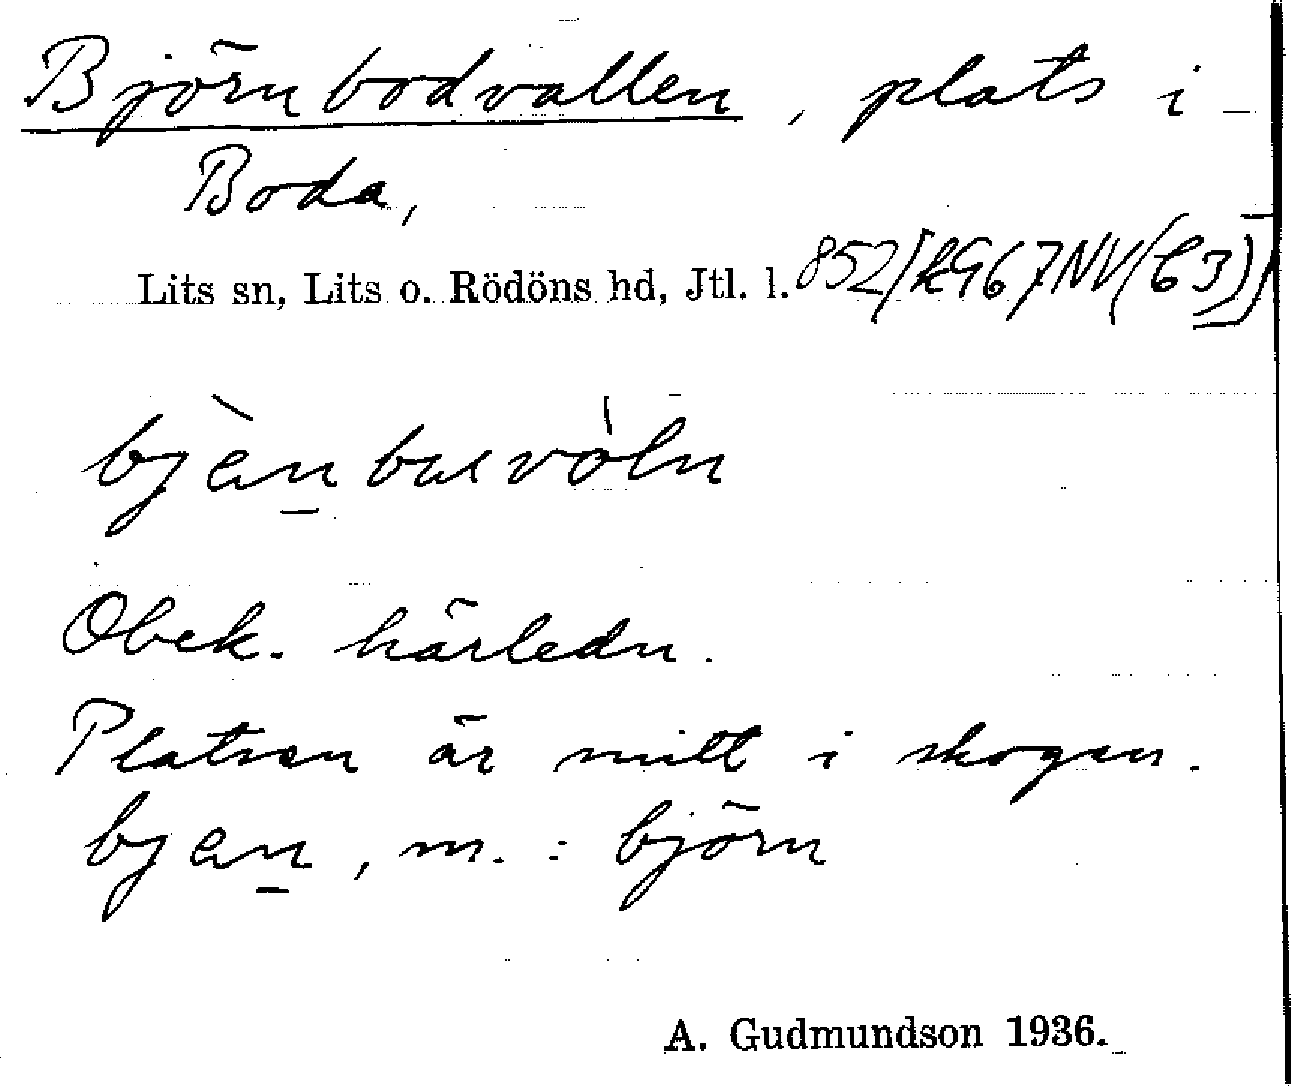 Björnbodvallen, plats i
Boda,
Lits sn, Lits o. Rödöns hd, Jtl. l.
Obek. härledn.
Platsen är mitt i skogen.
bjen, m. : björn
A. Gudmundson 1936.